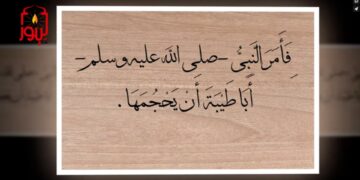 فَأَمَرَ النَّبِيُّ -صلى الله عليه وسلم-
أَبَا طَيْبَةَ أَنْ يَحْجُمَهَا.